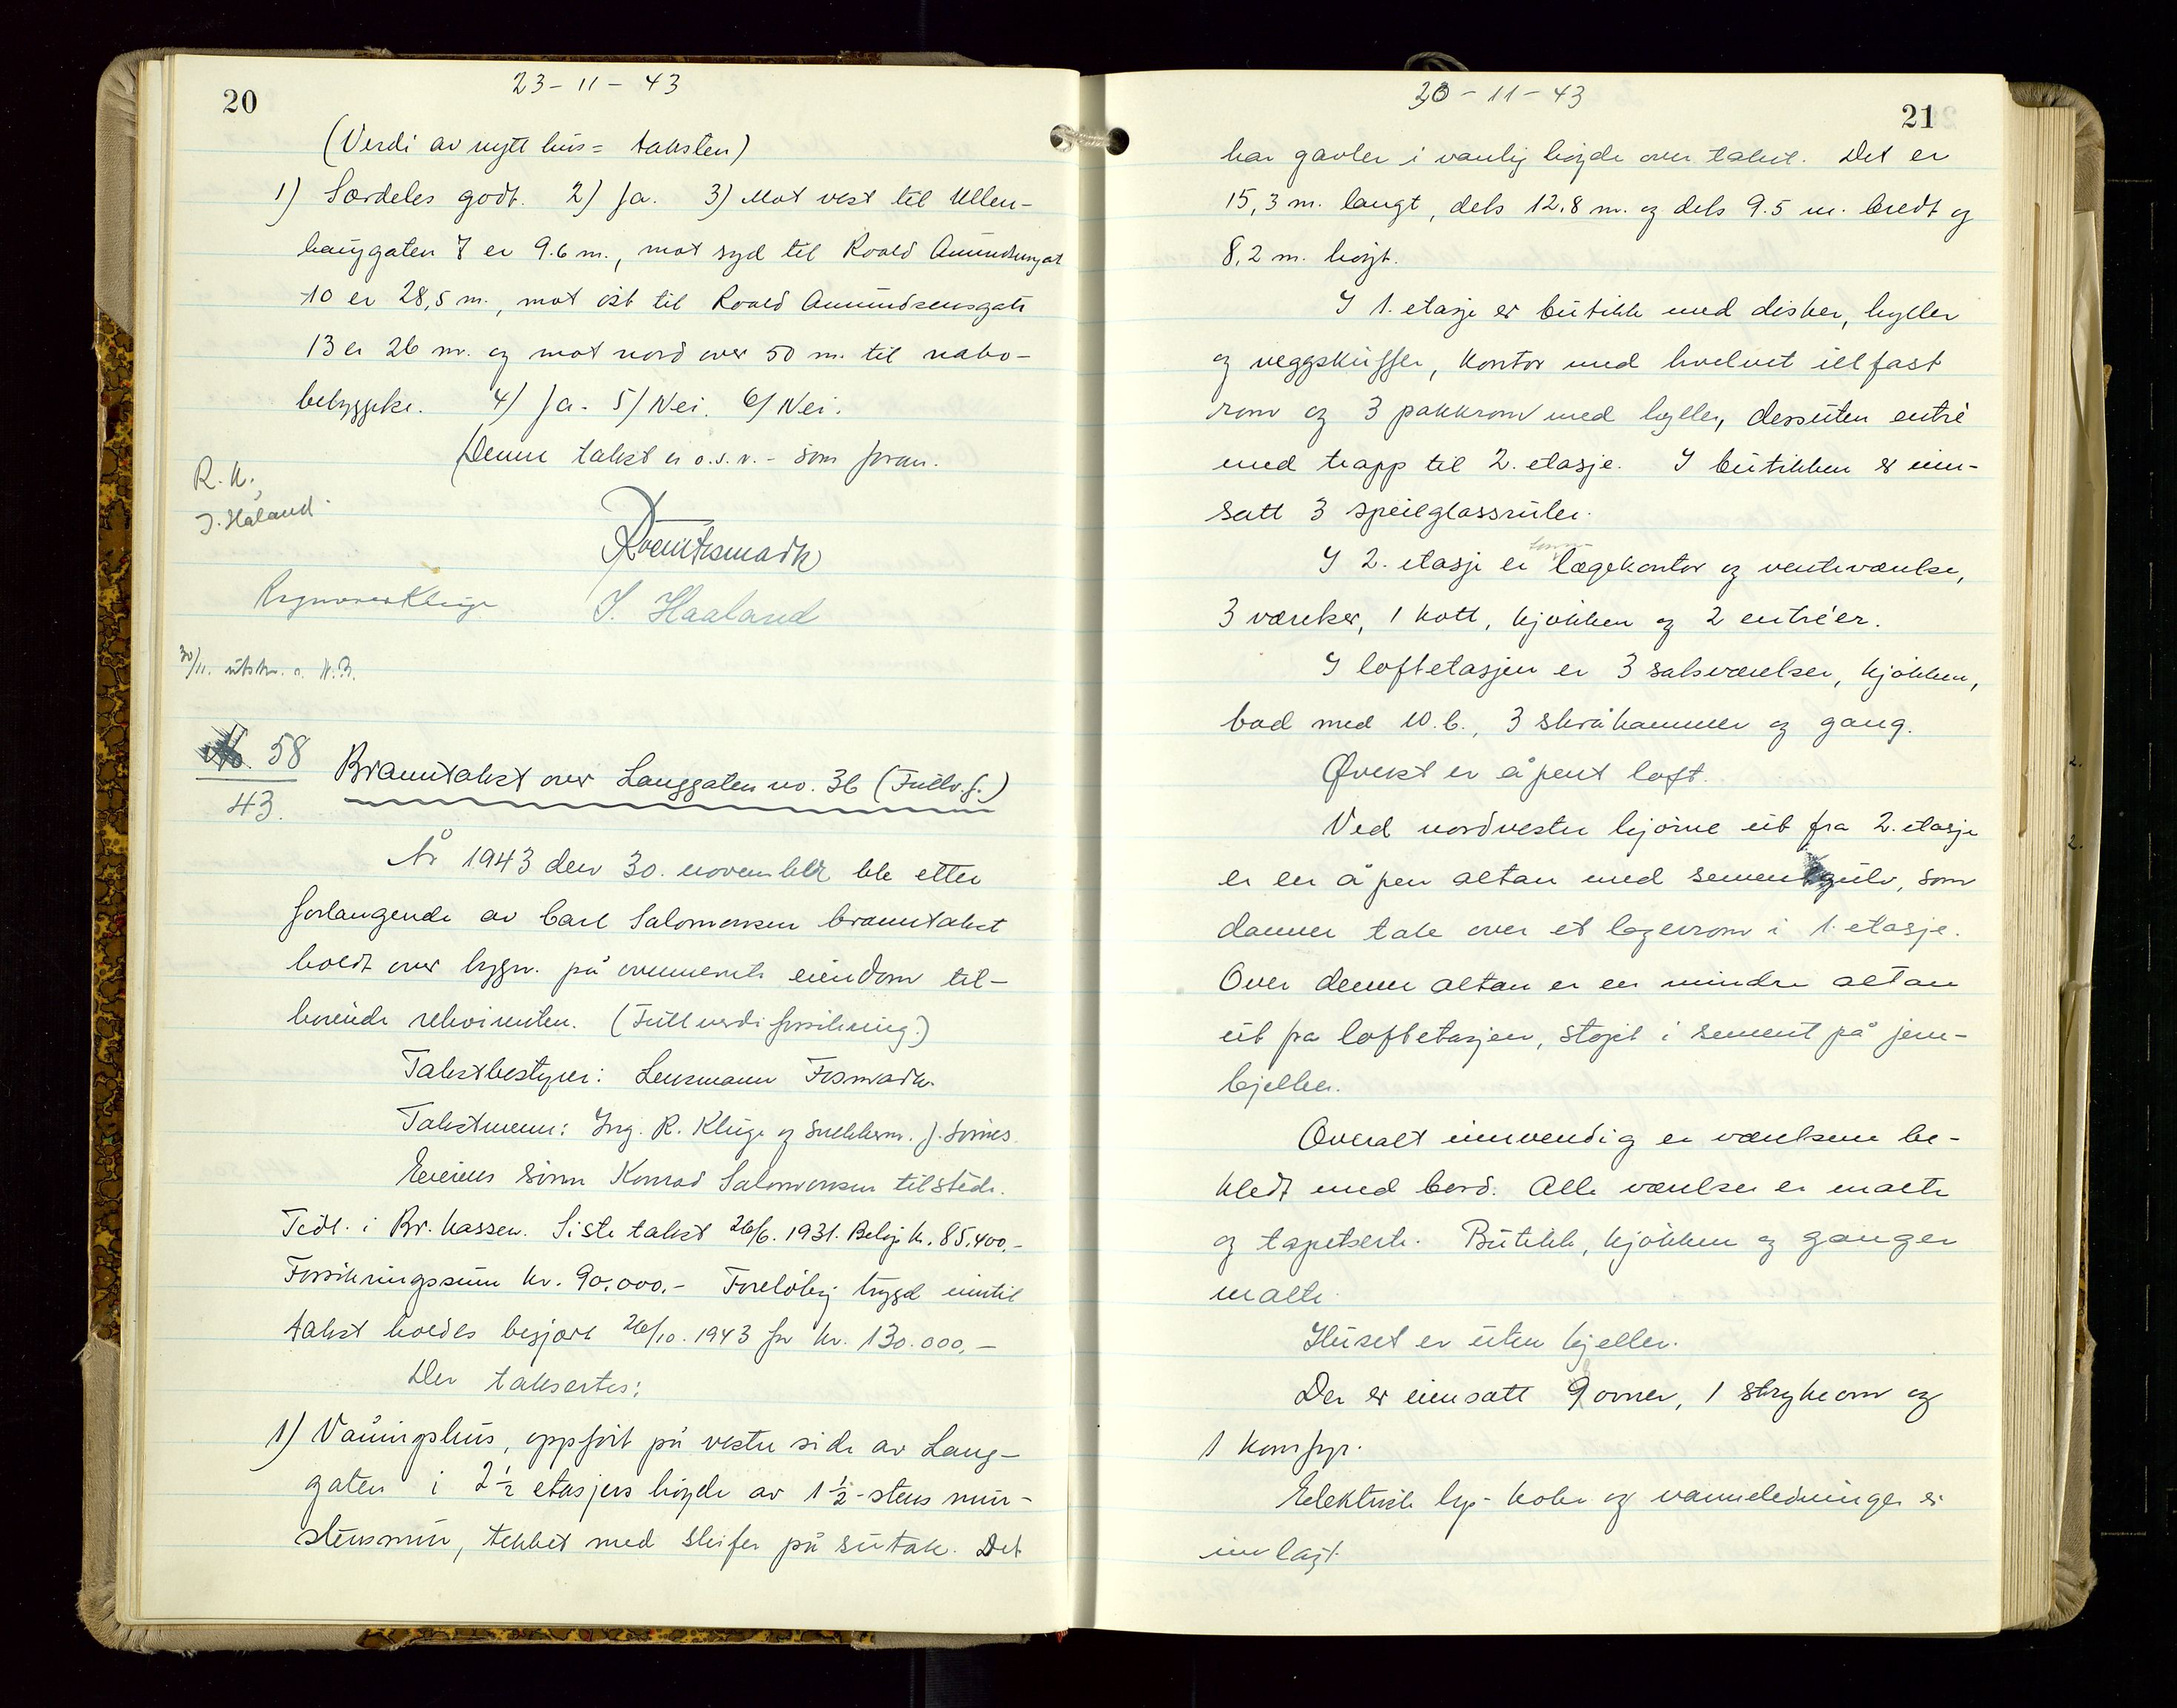 20
23-11-43
(Verdi av nytt hus = taksten)
1) Særdeles godt. 2) Ja. 3) Mot vest til Ullen-
hauggaten 7 er 9.6 m., mot syd til Roald Amundsensgat
10 er 28,5 m., mot øst til Roald Amundsensgate
13 er 26 m. og mot nord over 50 m. til nabo-
bebyggelse. 4) Ja. 5) Nei. 6) Nei.
(Denne takst er o.s.v. - som foran.
R. K.
J. Håland.
J. Haaland
Ragnvald Kluge
30/11. utskr.
58
43.
Branntakst over Langgaten no. 36 (Fullv.f.)
År 1943 den 30. november ble etter
forlangende av Carl Salomonsen branntakst
holdt over bygn. på ovennevnte eiendom til-
hørende rekvirenten. (Fullverdiforsikring.)
Takstbestyrer: Lensmann Tvemark.
Takstmenn: Ing. R. Kluge og Snekkerm. J.
Eierens sønn Konrad Salomonsen tilstede.
Tidl. i Br. kassen. Siste takst 26/6. 1931. Beløp kr. 85.400,-
Forsikringssum kr. 90.000.- Foreløbig trygd inntil
takst holdes begjært 26/10. 1943 for kr. 130.000,-
Der taksertes:
1) Våningshus, oppført på vestre side av Lang-
gaten i 2 1/2 etasjers høyde av 1 1/2-stens mur-
stensmur, tekket med skifer på sutak. Det
21
30-11-43
har gavler i vanlig høyde over taket. Det er
15,3 m. langt, dels 12.8 m. og dels 9.5 m. bredt og
8,2 m. høyt.
I 1. etasje er butikk med disker, hyller
og veggskuffer, kontor med hvelvet ildfast
rom og 3 pakkrom med hyller, dessuten entré
med trapp til 2. etasje. I butikken er inn-
satt 3 speilglassruter.
I 2. etasje er lægekontor og venteværelse,
3 værelser, 1 kott, kjøkken og 2 entréer.
I loftetasjen er 3 salsværelser, kjøkken,
bad med w.c., 3 skråkammer og gang.
Øverst er åpent loft.
Ved nordvestre hjørne ut fra 2. etasje
er en åpen altan med sementgulv, som
danner tak over et lagerrom i 1. etasje.
Over denne altan er en mindre altan
ut fra loftetasjen, støpt i sement på jern-
bjelker.
Overalt innvendig er værelsene be-
kledt med bord. Alle værelser er malte
og tapetserte. Butikk, kjøkken og ganger
malte.
Huset er uten kjeller.
Der er innsatt 9 ovner, 1 strykeovn og
1 komfyr.
Elektrisk lys- koke og vannledninger er
innlagt.